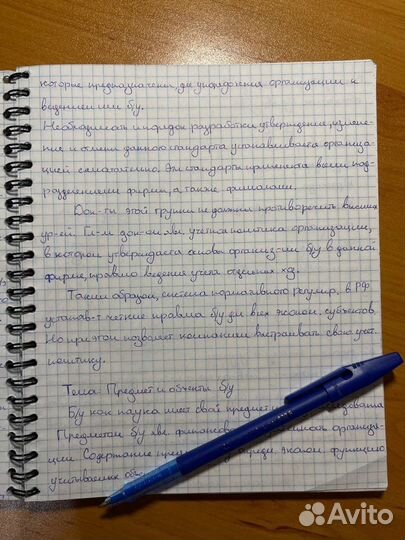 которые предназначены для упорядочения организации и
ведением ими б/у.
Необходимость и порядок разработки, утверждение, измене-
ние и отмены данного стандарта устанавливается организа-
цией самостоятельно. Эти стандарты применяются всеми под-
разделениями фирмы, а также филиалами.
Док-ты этой группы не должны противоречить высших
ур-ей. Гл-м док-ом явл. учетная политика организации,
в котором утверждается основы организ-ии б/у в данной
фирме, правило ведения учета отдельных хоз.
Таким образом, система нормативного регулир. в РФ
устанав-т четкие правила б/у для всех эконом. субъектов.
Но при этом позволяет компаниям выстраивать свою учет.
политику.
Тема: Предмет и объекты б/у
Б/у как наука имеет свой предмет
Предметом б/у явл. финансово организа-
ции. Содержание опред. эконом. функцию
учитываемых
Avito